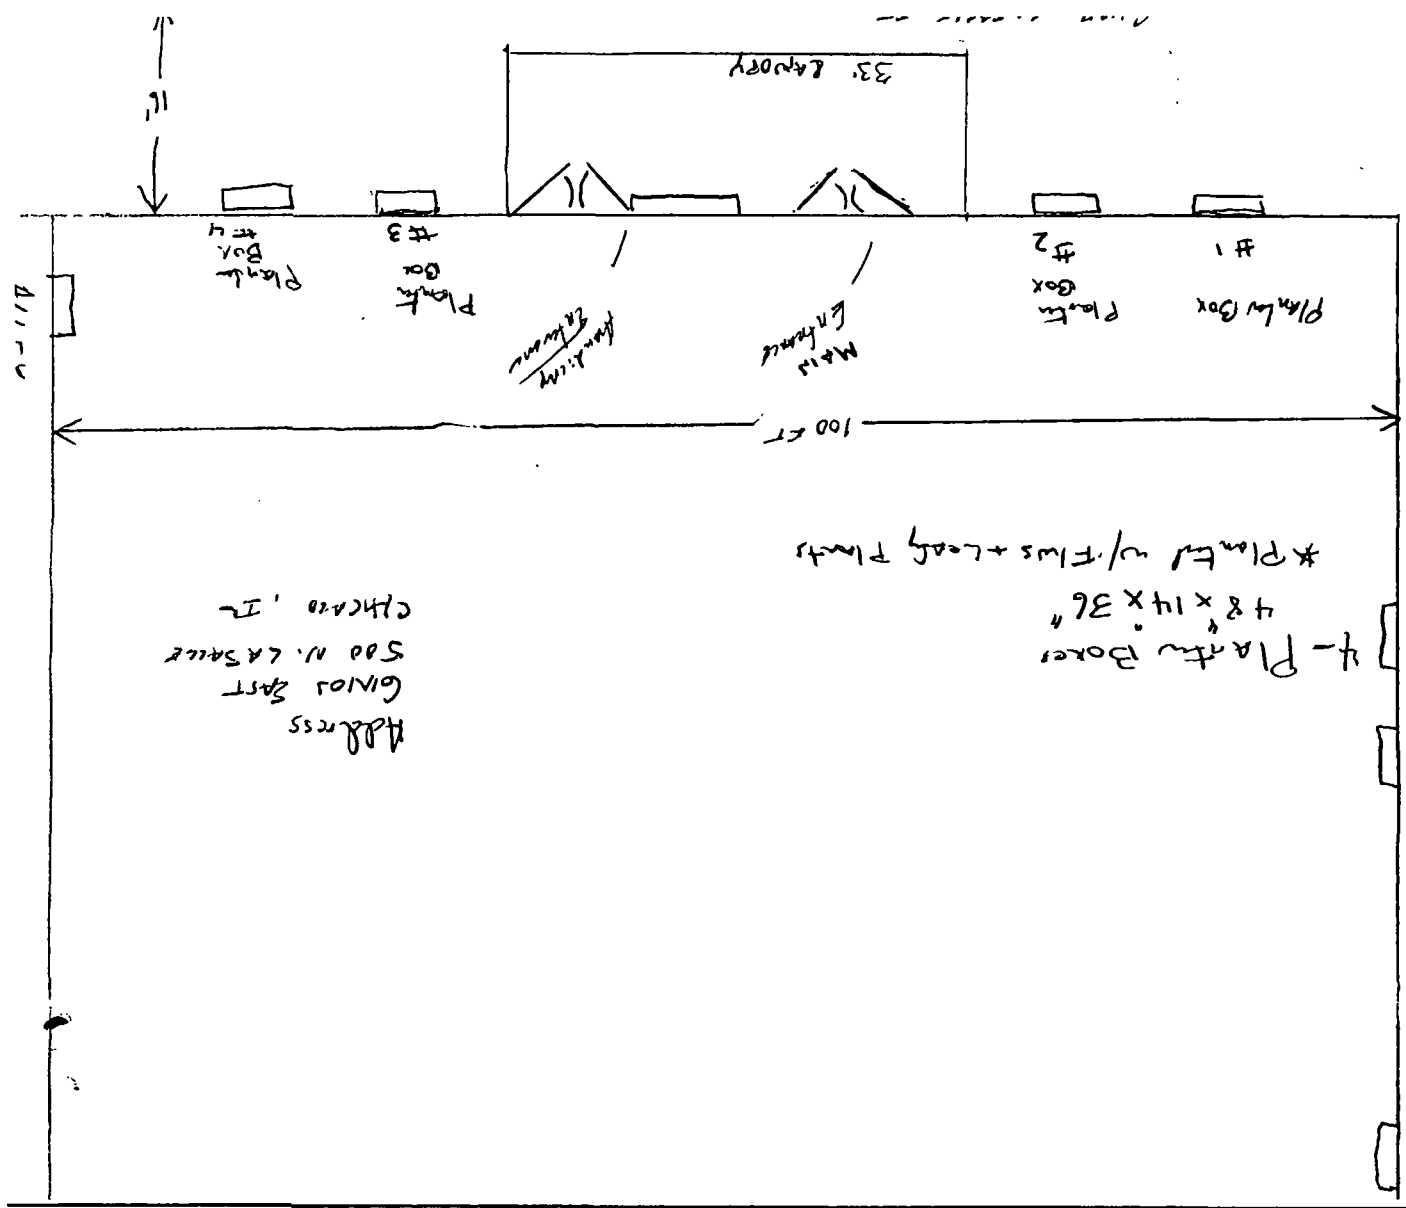 4 - Planter Boxes
48" x 14" x 36"
* Planted w/ Flws + Leafy Plants
Address
GINOS EAST
500 N. LASALLE
CHICAGO, IL
100 FT
Planter Box
#1
Planter
Box
#2
MAIN
Entrance
Handicap
Entrance
Planter
Box
#3
Planter
Box
#4
33' CANOPY
16'